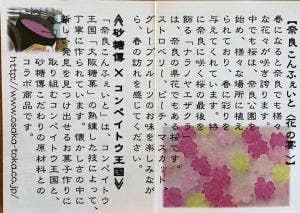 【奈良こんふぇいと〈花の宴〉】
春になると奈良でも様々
な花々が咲き誇ります。
中でも桜は、奈良公園を
始め、様々な場所に植え
られており、春に彩りを
に奈良に咲く桜の最後を
飾る「ナラノヤエザクラ」
は、奈良の県花でもある桜です。
ストロベリー、ピーチ、マスカット、
グレープフルーツのお味を楽しみなが
ら、春の訪れを感じてください。
≪砂糖傳 × コンペイトウ王国≫
「奈良こんふぇいと」は、コンペイトウ
王国「大阪糖菓」の熟練した技によって、
丁寧に作られています。懐かしさの中に
新しい発見をみつけ出せるお菓子作りに
取り組むコンペイトウ王国と
砂糖傳こだわりの原材料との
コラボ商品です。
http://www.osaka-toka.co.jp/